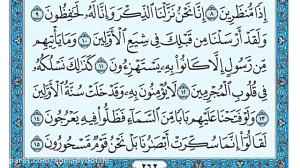 إِذًا مُّنظَرِينَ ٨ إِنَّا نَحْنُ نَزَّلْنَا ٱلذِّكْرَ وَإِنَّا لَهُۥ لَحَٰفِظُونَ ٩
وَلَقَدْ أَرْسَلْنَا مِن قَبْلِكَ فِي شِيَعِ ٱلْأَوَّلِينَ ١٠ وَمَا يَأْتِيهِم
مِّن رَّسُولٍ إِلَّا كَانُوا۟ بِهِۦ يَسْتَهْزِءُونَ ١١ كَذَٰلِكَ نَسْلُكُهُۥ
فِي قُلُوبِ ٱلْمُجْرِمِينَ ١٢ لَا يُؤْمِنُونَ بِهِۦ وَقَدْ خَلَتْ سُنَّةُ ٱلْأَوَّلِينَ
١٣ وَلَوْ فَتَحْنَا عَلَيْهِم بَابًا مِّنَ ٱلسَّمَآءِ فَظَلُّوا۟ فِيهِ يَعْرُجُونَ ١٤
لَقَالُوٓا۟ إِنَّمَا سُكِّرَتْ أَبْصَٰرُنَا بَلْ نَحْنُ قَوْمٌ مَّسْحُورُونَ ١٥
٢٦٢